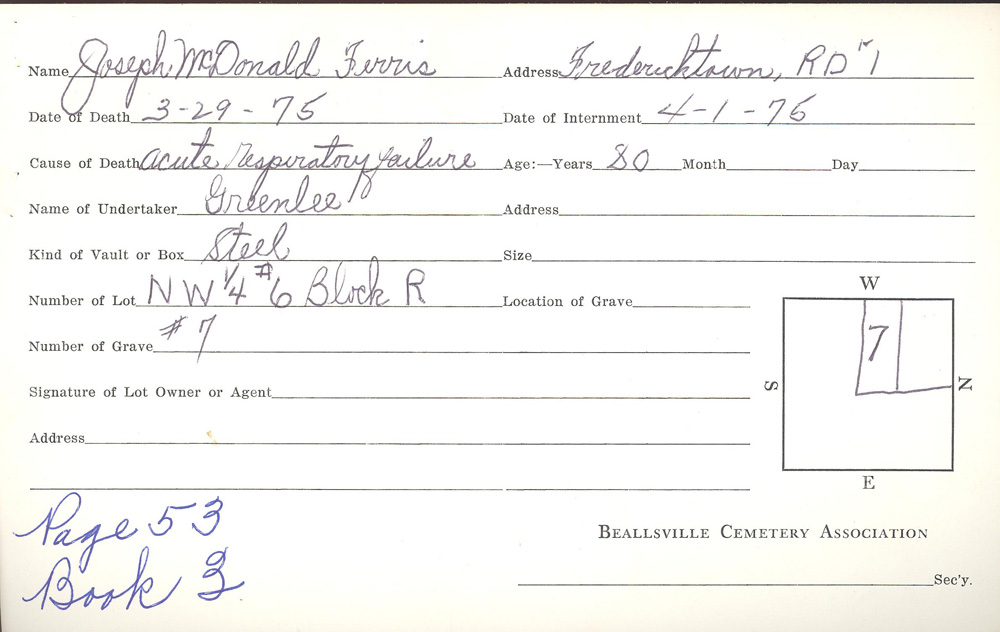 Name Joseph McDonald Ferris Address Fredericktown, RD #1
Date of Death 3-29-75 Date of Internment 4-1-75
Cause of Death acute respiratory failure Age:—Years 80 Month Day
Name of Undertaker Greenlee Address
Kind of Vault or Box Steel Size
Number of Lot NW 1/4 #6 Block R Location of Grave
Number of Grave #7
Signature of Lot Owner or Agent
Address
W
7
S N
E
Page 53
Book 3
BEALLSVILLE CEMETERY ASSOCIATION
Sec'y.